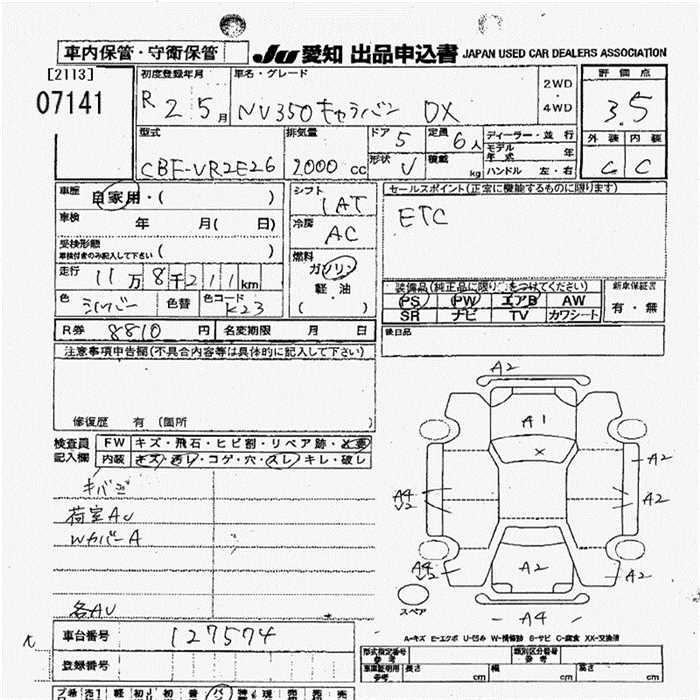 車内保管・守衛保管
JU 愛知 出品申込書 JAPAN USED CAR DEALERS ASSOCIATION
[2113]
07141
初度登録年月
R 2 5月
車名・グレード
NV350キャラバン DX
2WD
・
4WD
評価点
3.5
外装 内装
C C
型式
CBF-VR2E26
排気量
2000 cc
ドア 5
形状 V
定員 6人
積載 kg
ディーラー・並行
モデル年式 年
ハンドル 左・右
車歴 自家用・( )
車検 年 月(日)
受検形態
車検付きのみ記入して下さい ( )
走行 11万8千211km
色 シルバー 色替 色コード K23
シフト
IAT
冷房
AC
燃料
ガソリン
軽・油
( )
セールスポイント(正常に機能するものに限ります)
ETC
PS PW エアB AW
SR ナビ TV カワシート
新車保証書
有・無
後日品
R券 8810円 名変期限 月 日
注意事項申告欄(不具合内容等は具体的に記入して下さい)
修復歴 有(箇所 )
検査員
記入欄
FW キズ・飛石・ヒビ割・リペア跡・×要
内装 キズ・汚レ・コゲ・穴・スレ・キレ・破レ
荷室AU
WカバーA
各AU
A2
A1
×
A2
A4
V2
A2
A4
V2
A2
A2
スペア
A4
A-キズ E-エクボ U-凹み W-補修跡 S-サビ C-腐食 XX-交換済
車台番号 127574
登録番号
型式指定番号
参考
類別区分番号
参考
長さ cm 幅 cm 高さ cm